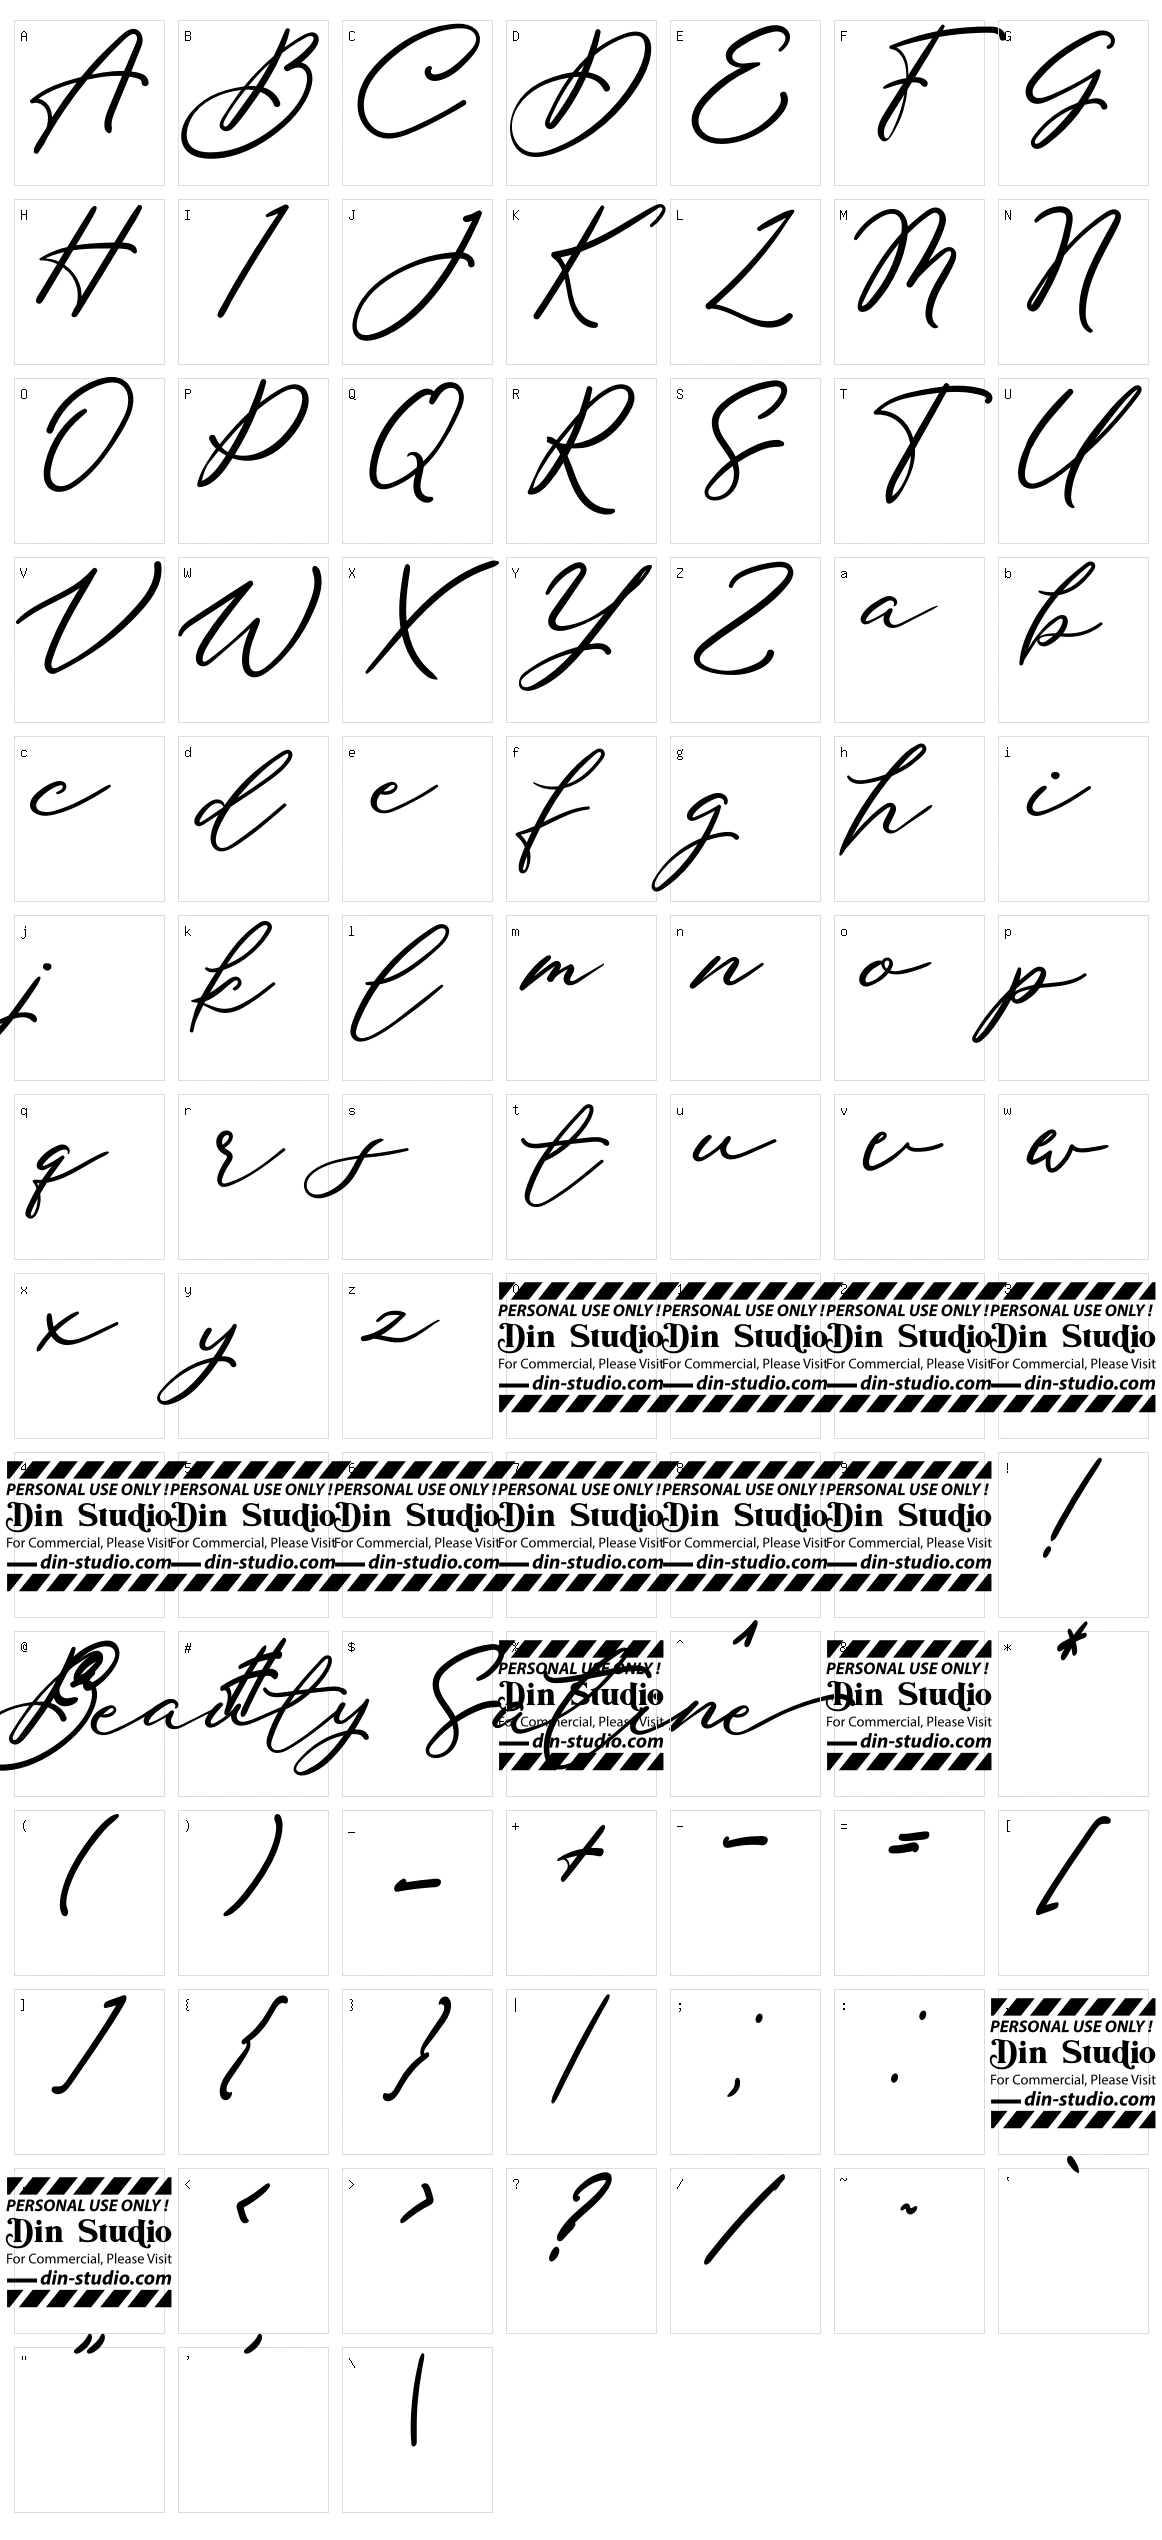 A B C D E F G
A B C D E F G
H I J K L M N
H I J K L M N
O P Q R S T U
O P Q R S T U
V W X Y Z a b
V W X Y Z a b
c d e f g h i
c d e f g h i
j k l m n o p
j k l m n o p
q r s t u v w
q r s t u v w
x y z 0 1 2 3
x y z
PERSONAL USE ONLY ! PERSONAL USE ONLY ! PERSONAL USE ONLY ! PERSONAL USE ONLY !
Din Studio Din Studio Din Studio Din Studio
For Commercial, Please Visit For Commercial, Please Visit For Commercial, Please Visit For Commercial, Please Visit
din-studio.com din-studio.com din-studio.com din-studio.com
4 5 6 7 8 9 !
PERSONAL USE ONLY ! PERSONAL USE ONLY ! PERSONAL USE ONLY ! PERSONAL USE ONLY ! PERSONAL USE ONLY ! PERSONAL USE ONLY ! !
Din Studio Din Studio Din Studio Din Studio Din Studio Din Studio
For Commercial, Please Visit For Commercial, Please Visit For Commercial, Please Visit For Commercial, Please Visit For Commercial, Please Visit For Commercial, Please Visit
din-studio.com din-studio.com din-studio.com din-studio.com din-studio.com din-studio.com
@ # $ % ^ & *
@ # ^ *
PERSONAL USE ONLY ! PERSONAL USE ONLY !
Beauty Satine
Din Studio Din Studio
For Commercial, Please Visit For Commercial, Please Visit
din-studio.com din-studio.com
( ) _ + - = [
( ) _ + - = [
] { } | ; :
] { } | ; :
PERSONAL USE ONLY !
Din Studio
For Commercial, Please Visit
din-studio.com
< > ? / ~ `
< > ? / ~ `
PERSONAL USE ONLY !
Din Studio
For Commercial, Please Visit
din-studio.com
" ' \
" ' \